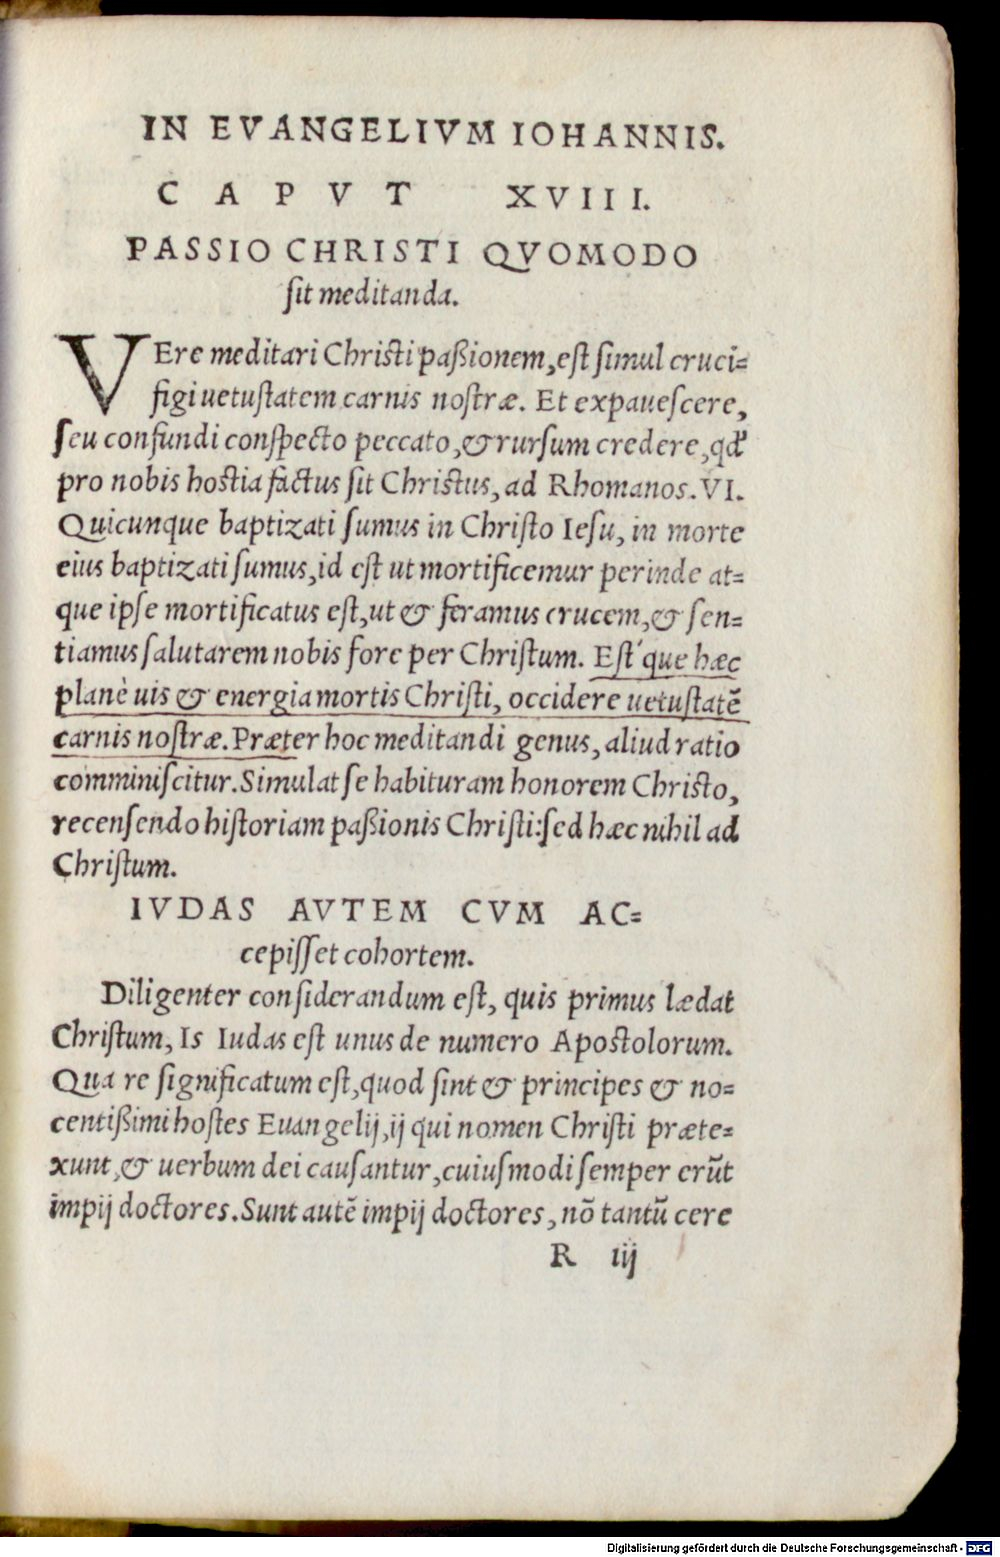 IN EVANGELIVM IOHANNIS.
CAPVT XVIII.
PASSIO CHRISTI QVOMODO
ſit meditanda.
VEre meditari Chriſti paßionem, eſt ſimul cruci=
figi uetuſtatem carnis noſtræ. Et expaueſcere,
ſeu confundi conſpecto peccato, & rurſum credere, qđ
pro nobis hoſtia factus ſit Chriſtus, ad Rhomanos. VI.
Quicunque baptizati ſumus in Chriſto Ieſu, in morte
eius baptizati ſumus, id eſt ut mortificemur perinde at=
que ipſe mortificatus eſt, ut & feramus crucem, & ſen=
tiamus ſalutarem nobis fore per Chriſtum. Eſt'que hæc
planè uis & energia mortis Chriſti, occidere uetuſtatẽ
carnis noſtræ. Præter hoc meditandi genus, aliud ratio
comminiſcitur. Simulat ſe habituram honorem Chriſto,
recenſendo hiſtoriam paßionis Chriſti: ſed hæc nihil ad
Chriſtum.
IVDAS AVTEM CVM AC=
cepiſſet cohortem.
Diligenter conſiderandum eſt, quis primus lædat
Chriſtum, Is Iudas eſt unus de numero Apoſtolorum.
Qua re ſignificatum eſt, quod ſint & principes & no=
centißimi hoſtes Euangelij, ij qui nomen Chriſti præte=
xunt, & uerbum dei cauſantur, cuiuſmodi ſemper erũt
impij doctores. Sunt autẽ impij doctores, nõ tantũ cere
R iij
Digitalisierung gefördert durch die Deutsche Forschungsgemeinschaft - DFG